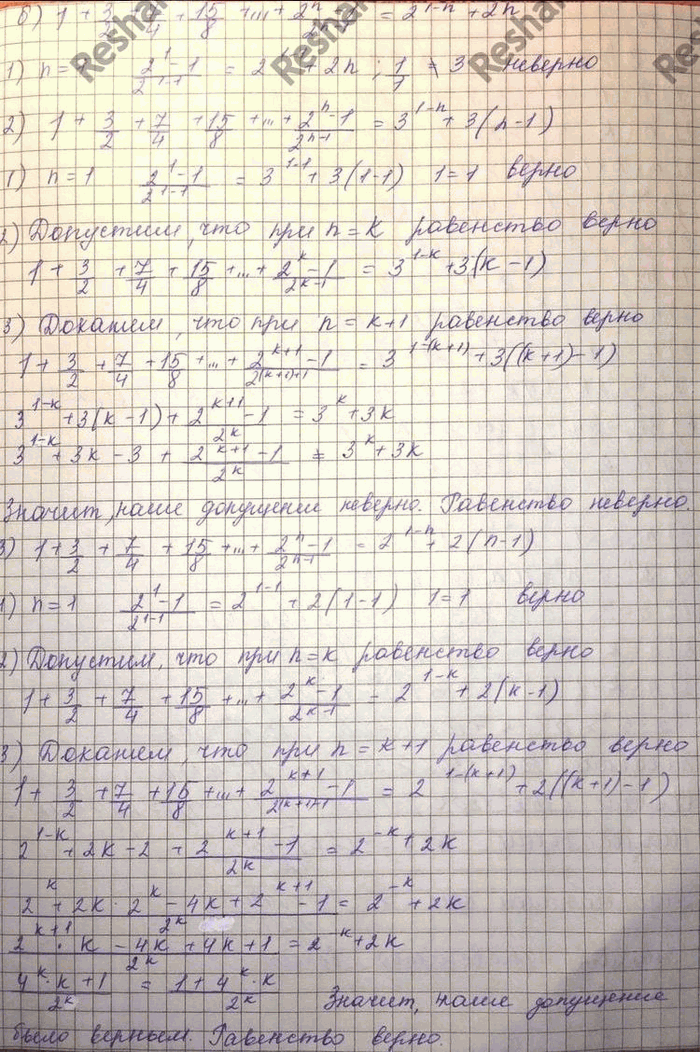 б) 1 + 3/2 + 7/4 + 15/8 + ... + = 2^(1-n) + 2n
1) n = (2^1 - 1)/2^(1-1) = 2 + 2n ; 1/1 = 3 неверно
2) 1 + 3/2 + 7/4 + 15/8 + ... + (2^n - 1)/2^(n-1) = 3^(1-n) + 3(n-1)
1) n = 1 (2^1 - 1)/2^(1-1) = 3^(1-1) + 3(1-1) 1 = 1 верно
2) Допустим, что при n = k равенство верно
1 + 3/2 + 7/4 + 15/8 + ... + (2^k - 1)/2^(k-1) = 3^(1-k) + 3(k-1)
3) Докажем, что при n = k+1 равенство верно
1 + 3/2 + 7/4 + 15/8 + ... + (2^(k+1) - 1)/2^((k+1)-1) = 3^(1-(k+1)) + 3((k+1)-1)
3^(1-k) + 3(k-1) + (2^(k+1) - 1)/2^k = 3^k + 3k
3^(1-k) + 3k - 3 + (2^(k+1) - 1)/2^k = 3^k + 3k
Значит, наше допущение неверно. Равенство неверно.
3) 1 + 3/2 + 7/4 + 15/8 + ... + (2^n - 1)/2^(n-1) = 2^(1-n) + 2(n-1)
1) n = 1 (2^1 - 1)/2^(1-1) = 2^(1-1) + 2(1-1) 1 = 1 верно
2) Допустим, что при n = k равенство верно
1 + 3/2 + 7/4 + 15/8 + ... + (2^k - 1)/2^(k-1) = 2^(1-k) + 2(k-1)
3) Докажем, что при n = k+1 равенство верно
1 + 3/2 + 7/4 + 15/8 + ... + (2^(k+1) - 1)/2^((k+1)-1) = 2^(1-(k+1)) + 2((k+1)-1)
2^(1-k) + 2k - 2 + (2^(k+1) - 1)/2^k = 2^(-k) + 2k
(2^k + 2k · 2^k - 4k + 2^(k+1) - 1)/2^k = 2^(-k) + 2k
(2^(k+1) · k - 4k + 4k + 1)/2^k = 2^(-k) + 2k
(4^k · k + 1)/2^k = (1 + 4^k · k)/2^k Значит, наше допущение
было верным. Равенство верно.